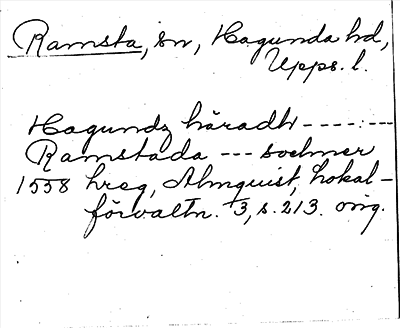 Ramsta, sn, Hagunda hd,
Upps. l.
Hagundz häradh ----:---
Ramstada --- sochner
1558 hreg, Almquist, Lokal-
förvaltn. 1/3, s. 213. orig.